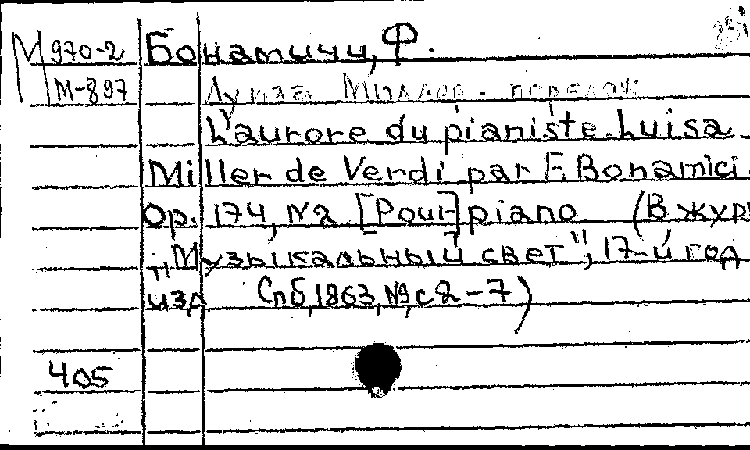 М 970-2 Бонамичи, Ф.
М-897 Луиза Миллер. перелож
L'aurore du pianiste. Luisa
Miller de Verdi par F. Bonamici.
Op. 174, N2 [Pour] piano (В журн
"Музыкальный свет", 17-й год
изд Спб, 1863, №, с 2-7)
405